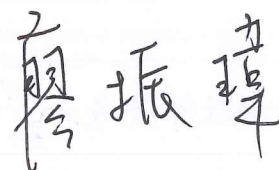 廖振瑋